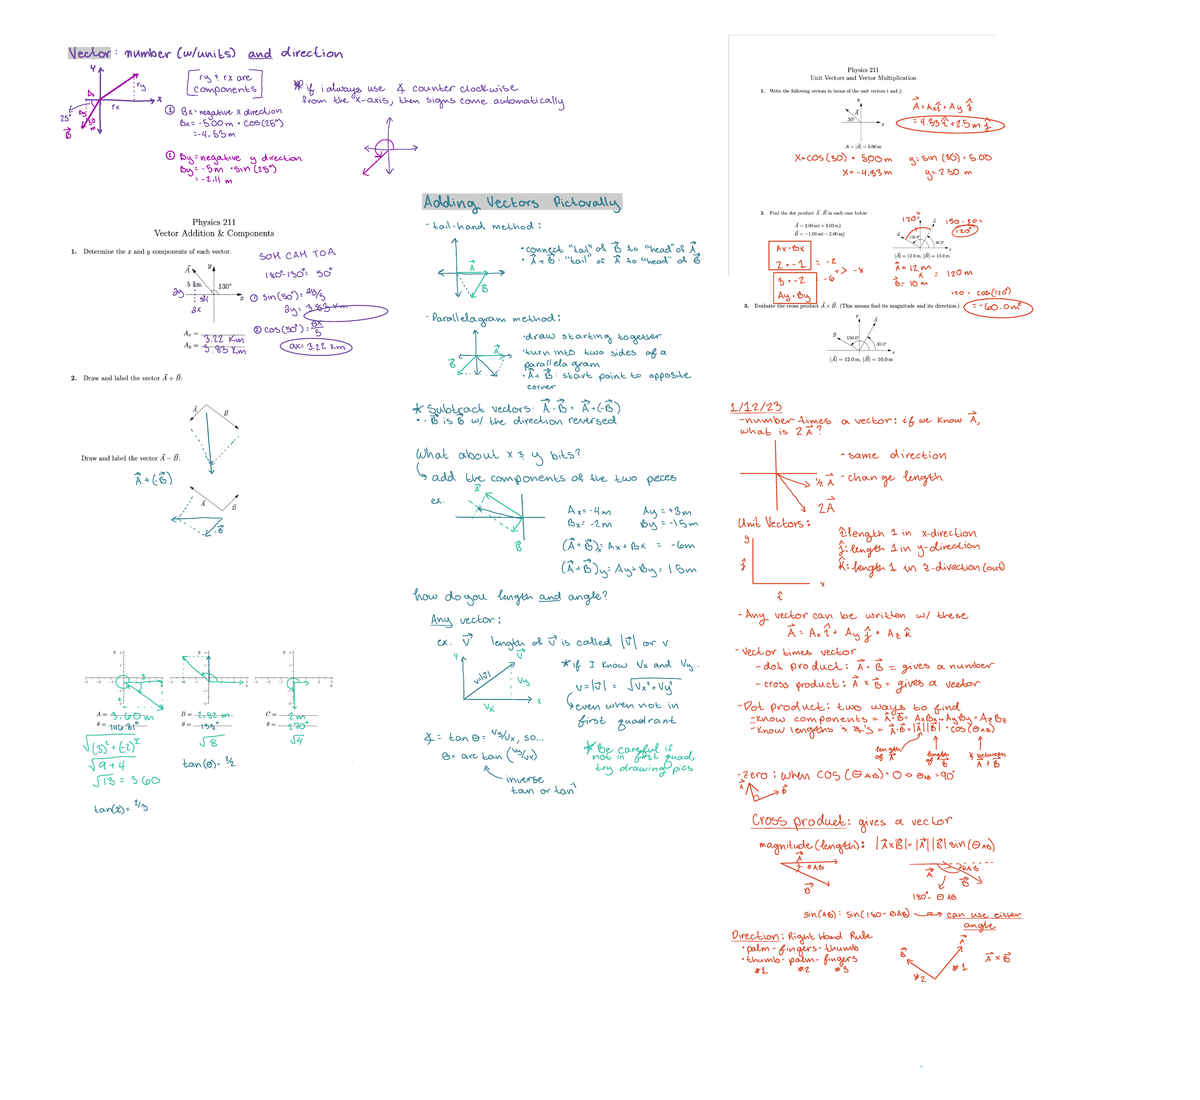 Vector: number (w/units) and direction
y
ry
rx
x
Bx
By
25°
5.0 m
B
ry & rx are
components
* if i always use ∡ counter clockwise
from the x-axis, then signs come automatically
① Bx = negative x direction
Bx = -5.00 m • cos(25°)
= -4.53 m
② By = negative y direction
By = -5m • sin(25°)
= -2.11 m
Physics 211
Vector Addition & Components
1. Determine the x and y components of each vector.
A⃗
y
5 km
130°
50
x
ay
ax
Ax =
3.22 Km
Ay =
3.83 Km
SOH CAH TOA
180° - 130° = 50°
① sin(50°) = ay/5
ay = 3.83 km
② cos(50°) = ax/5
ax = 3.22 km
2. Draw and label the vector A⃗ + B⃗:
A⃗
B⃗
Draw and label the vector A⃗ − B⃗:
A⃗ + (-B⃗)
A⃗
B⃗
-B⃗
A = 3.60 m
θ = 146.31°
√(3)² + (-2)²
√9 + 4
√13 = 3.60
tan(x) = 2/3
B = 2.82 m
θ = 135°
√8
tan(θ) = 2/2
C = 2 m
θ = 270°
√4
Adding Vectors Pictorally
- tail-hand method:
A⃗
B⃗
• connect "tail" of B⃗ to "head" of A⃗
• A⃗ + B⃗ = "tail" of A⃗ to "head" of B⃗
- Parallelagram method:
A⃗
B⃗
• draw starting together
• turn into two sides of a
parallelagram
• A⃗ + B⃗ : start point to opposite
corner
* Subtract vectors: A⃗ - B⃗ = A⃗ + (-B⃗)
• -B⃗ is B⃗ w/ the direction reversed
What about x & y bits?
↳ add the components of the two peces
ex.
A⃗
B⃗
Ax = -4 m Ay = +3m
Bx = -2 m By = -1.5m
(A⃗ + B⃗)x = Ax + Bx = -6m
(A⃗ + B⃗)y = Ay + By = 1.5m
how do you length and angle?
Any vector:
ex. V⃗ length of V⃗ is called |V⃗| or v
y
V⃗
v=|V⃗|
Vy
Vx
x
* if I know Vx and Vy...
v = |V⃗| = √Vx² + Vy²
↳ even when not in
first quadrant
∡ = tan θ = Vy/Vx, so...
θ = arc tan (Vy/Vx)
inverse
tan or tan⁻¹
* Be careful if
not in first quad,
try drawing pics
Physics 211
Unit Vectors and Vector Multiplication
1. Write the following vectors in terms of the unit vectors î and ĵ:
y
A⃗
30°
x
A = |A⃗| = 5.00 m
A⃗ = Axî + Ay ĵ
= 4.33 î + 2.5 m ĵ
x = cos(30) • 5.00 m
x = -4.33 m
y = sin(30) • 5.00
y = 2.50 m
2. Find the dot product A⃗ · B⃗ in each case below:
A⃗ = 2.00 mî + 3.00 mĵ
B⃗ = −1.00 mî − 2.00 mĵ
Ax • Bx
2 • -1
= -2
3 • -2
-6
=> -8
Ay • By
120°
150 - 30 =
120°
B⃗
A⃗
150.0°
30.0°
|A⃗| = 12.0 m, |B⃗| = 10.0 m
A⃗ = 12 m
B⃗ = 10 m
= 120 m
120 • cos(120°)
= -60.0m²
3. Evaluate the cross product A⃗ × B⃗. (This means find its magnitude and its direction.)
y
A⃗
B⃗
150.0°
x
|A⃗| = 12.0 m, |B⃗| = 10.0 m
1/12/23
- number times a vector: if we know A⃗,
what is 2A⃗?
½ A⃗
2A⃗
- same direction
- change length
Unit Vectors:
y
ĵ
x
î
î: length 1 in x-direction
ĵ: length 1 in y-direction
k̂: length 1 in z-direction (out)
- Any vector can be written w/ these
A⃗ = Ax î + Ay ĵ + Az k̂
- Vector times vector
- dot product: A⃗ · B⃗ = gives a number
- cross product: A⃗ × B⃗ = gives a vector
- Dot product: two ways to find
- know components = A⃗·B⃗ = AxBx + AyBy + AzBz
- know lengths & ∡'s = A⃗·B⃗ = |A⃗||B⃗| • cos(θAB)
length of A⃗
length of B⃗
∡ between A⃗ & B⃗
- zero: when cos(θAB) = 0 ⇒ θAB = 90°
A⃗
B⃗
Cross product: gives a vector
magnitude (length): |A⃗×B⃗| = |A⃗||B⃗| sin(θAB)
A⃗
θAB
B⃗
A⃗
θAB
B⃗
180° - θAB
sin(AB) = sin(180 - θAB) → can use either
angle
Direction: Right Hand Rule
• palm - fingers - thumb
• thumb - palm - fingers
#1 #2 #3
B⃗
A⃗
#1
#2
A⃗ × B⃗